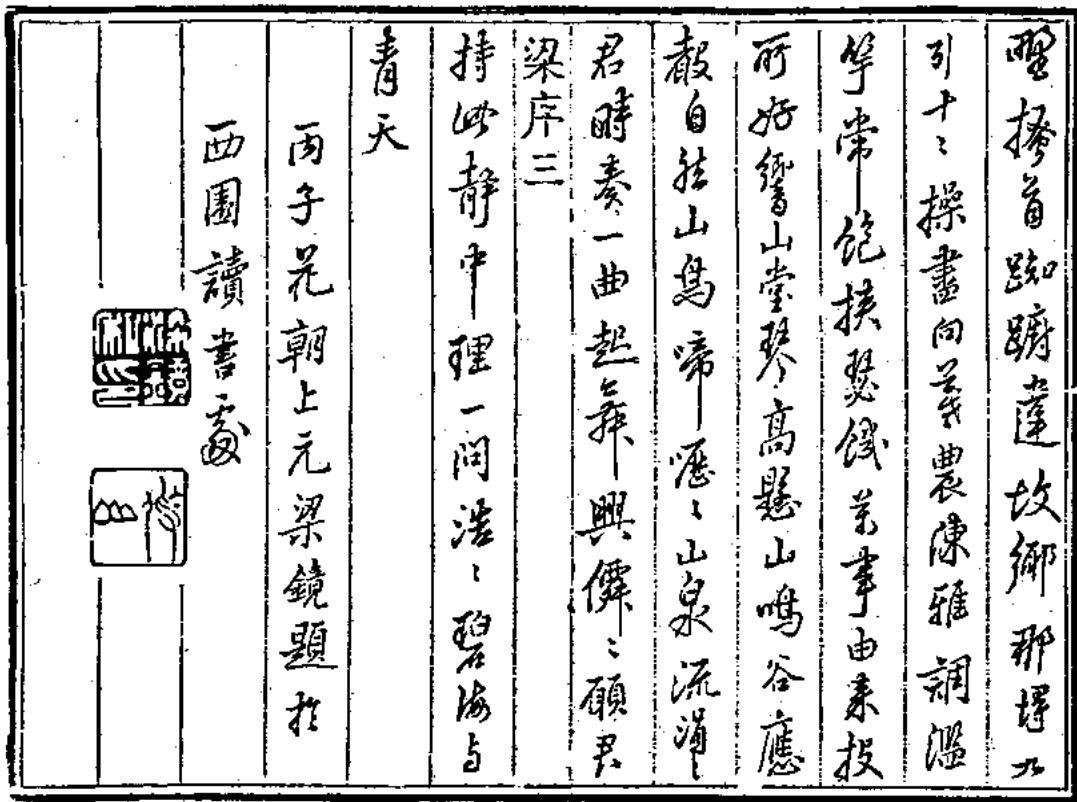 搔首踟躕違故鄉那堪九
引十二操盡向羲農陳雅調濫
竽常飽挾瑟餓萬事由來投
所好響山堂琴高懸山鳴谷應
聲自然山鳥啼嚦〻山泉流涓〻
君時奏一曲起舞興僊〻願君
梁序三
持此靜中理一問浩〻碧海与
青天
丙子花朝上元梁鏡題於
西園讀書處